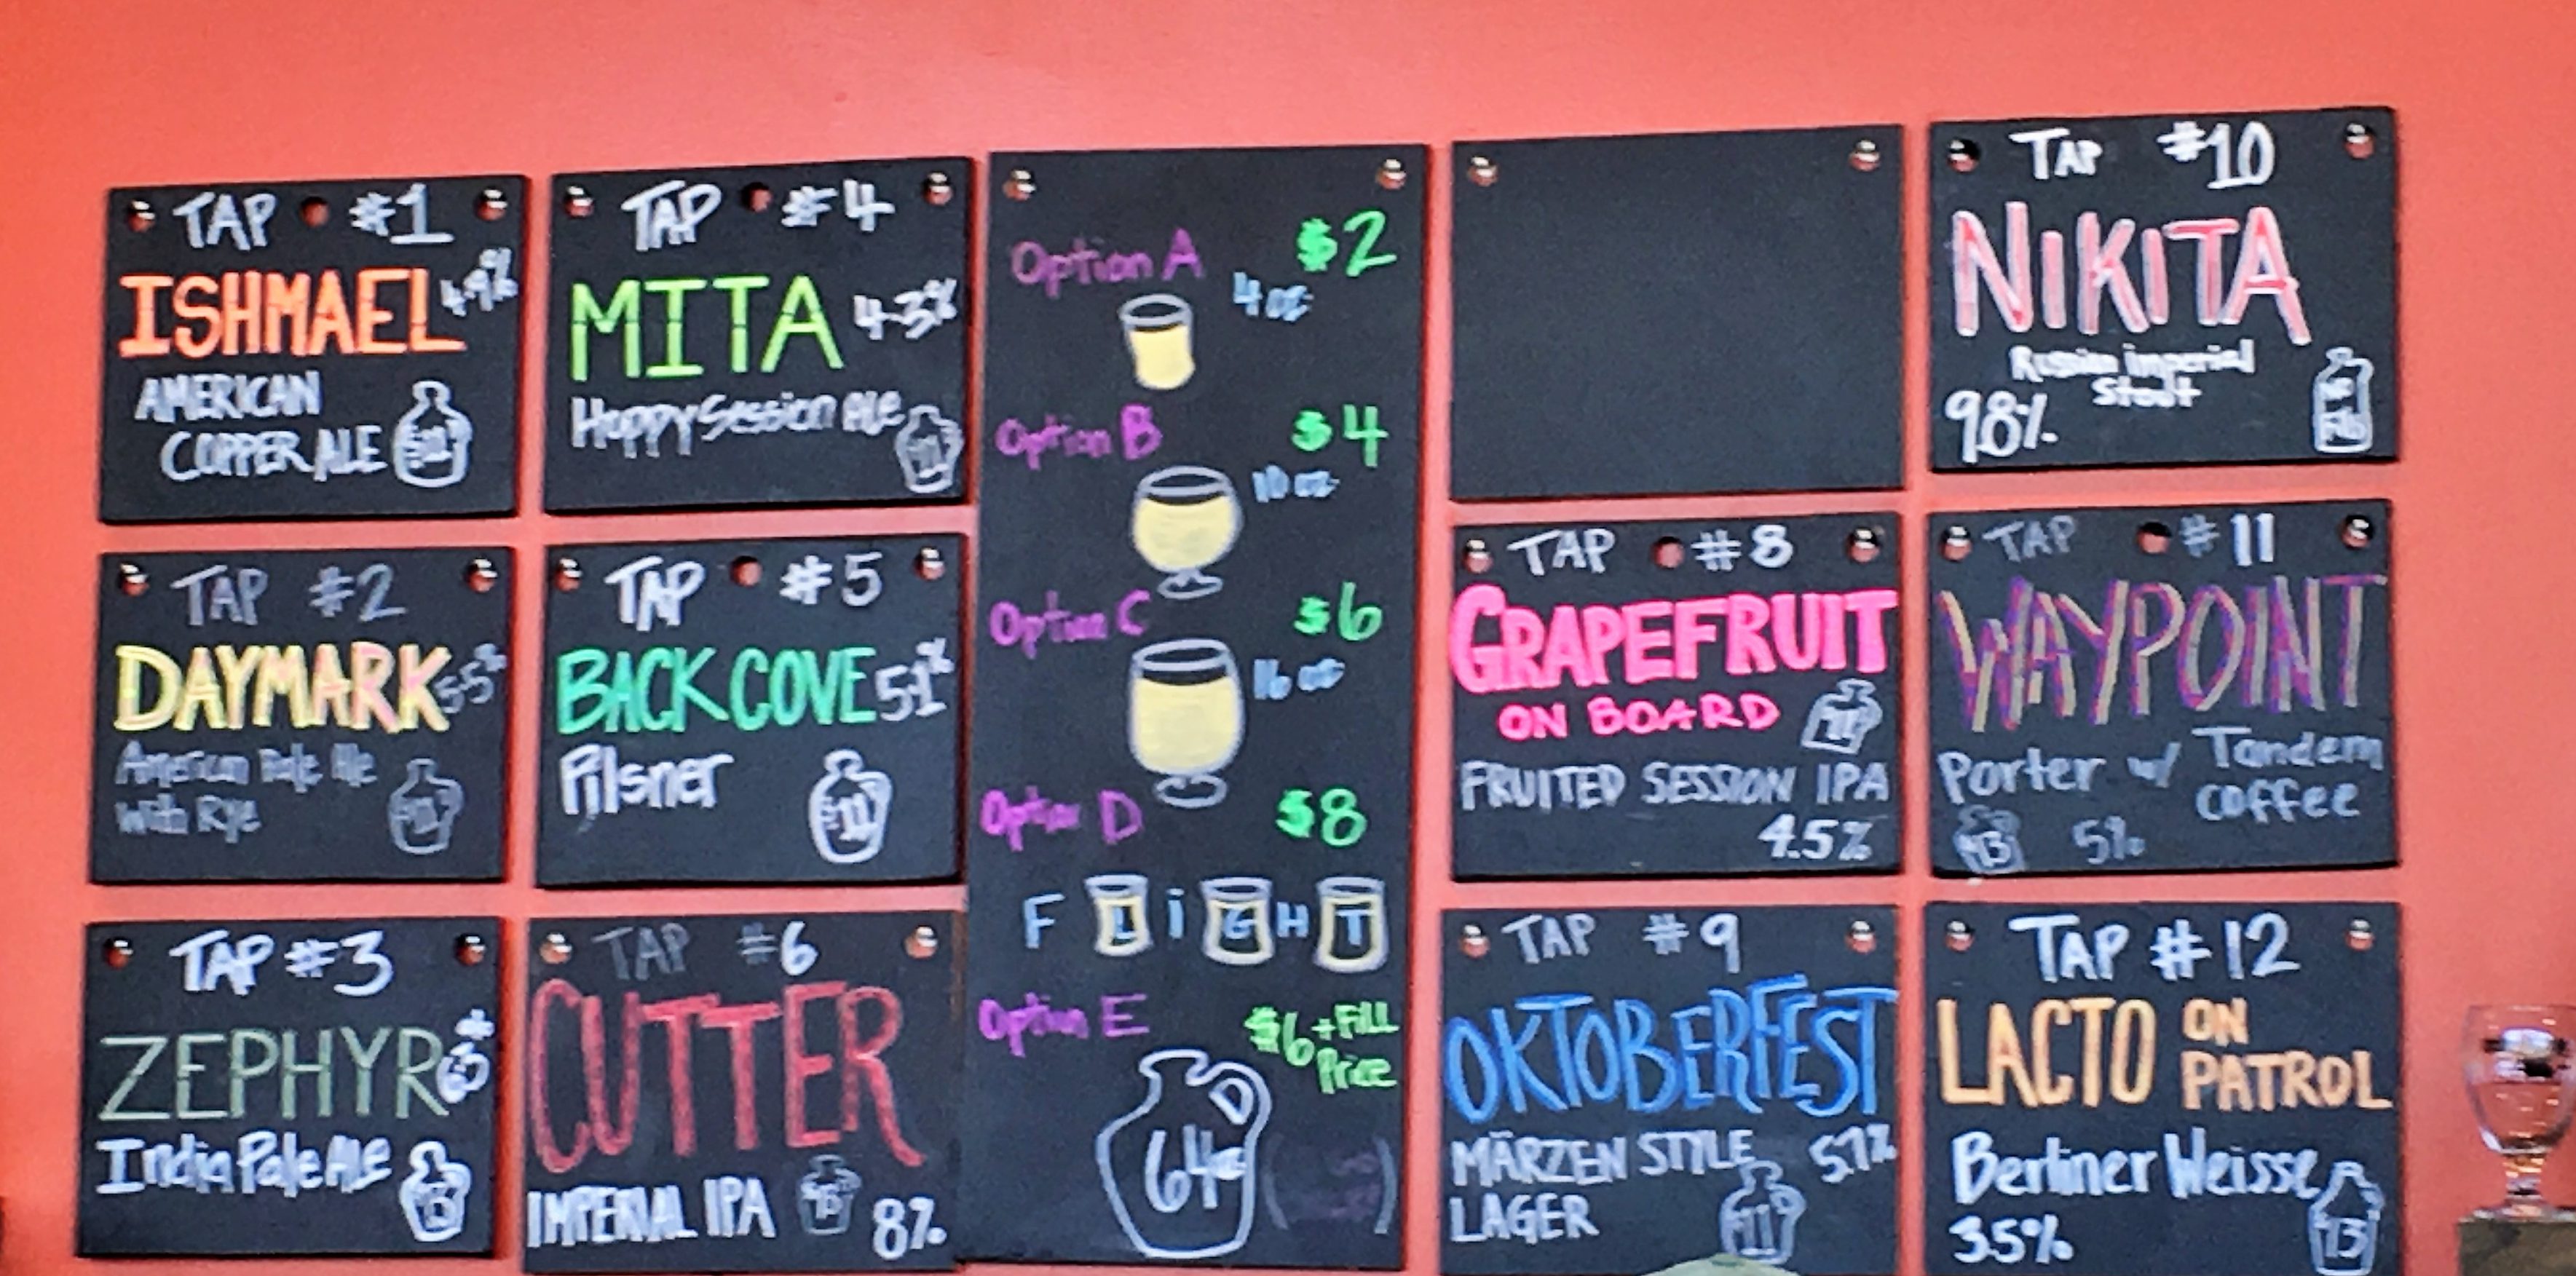 TAP #1
ISHMAEL 4.9%
AMERICAN
COPPER ALE
TAP #2
DAYMARK 5.5%
American Pale Ale
With Rye
TAP #3
ZEPHYR
India Pale Ale
TAP #4
MITA 4.3%
Hoppy Session Ale
TAP #5
BACK COVE 5.1%
Pilsner
TAP #6
CUTTER
IMPERIAL IPA 8%
Option A $2
4 oz
Option B $4
10 oz
Option C $6
16 oz
Option D $8
FLiGHT
Option E $6 + Fill
Price
64oz
TAP #8
GRAPEFRUIT
ON BOARD
FRUITED SESSION IPA
4.5%
TAP #9
OKTOBERFEST
MÄRZEN STYLE 5.7%
LAGER 11
TAP #10
NIKITA
Russian imperial
Stout
9.8%
No
Fills
TAP #11
WAYPOINT
Porter w/ Tandem
coffee
13 5%
TAP #12
LACTO ON
PATROL
Berliner Weisse
3.5% 13